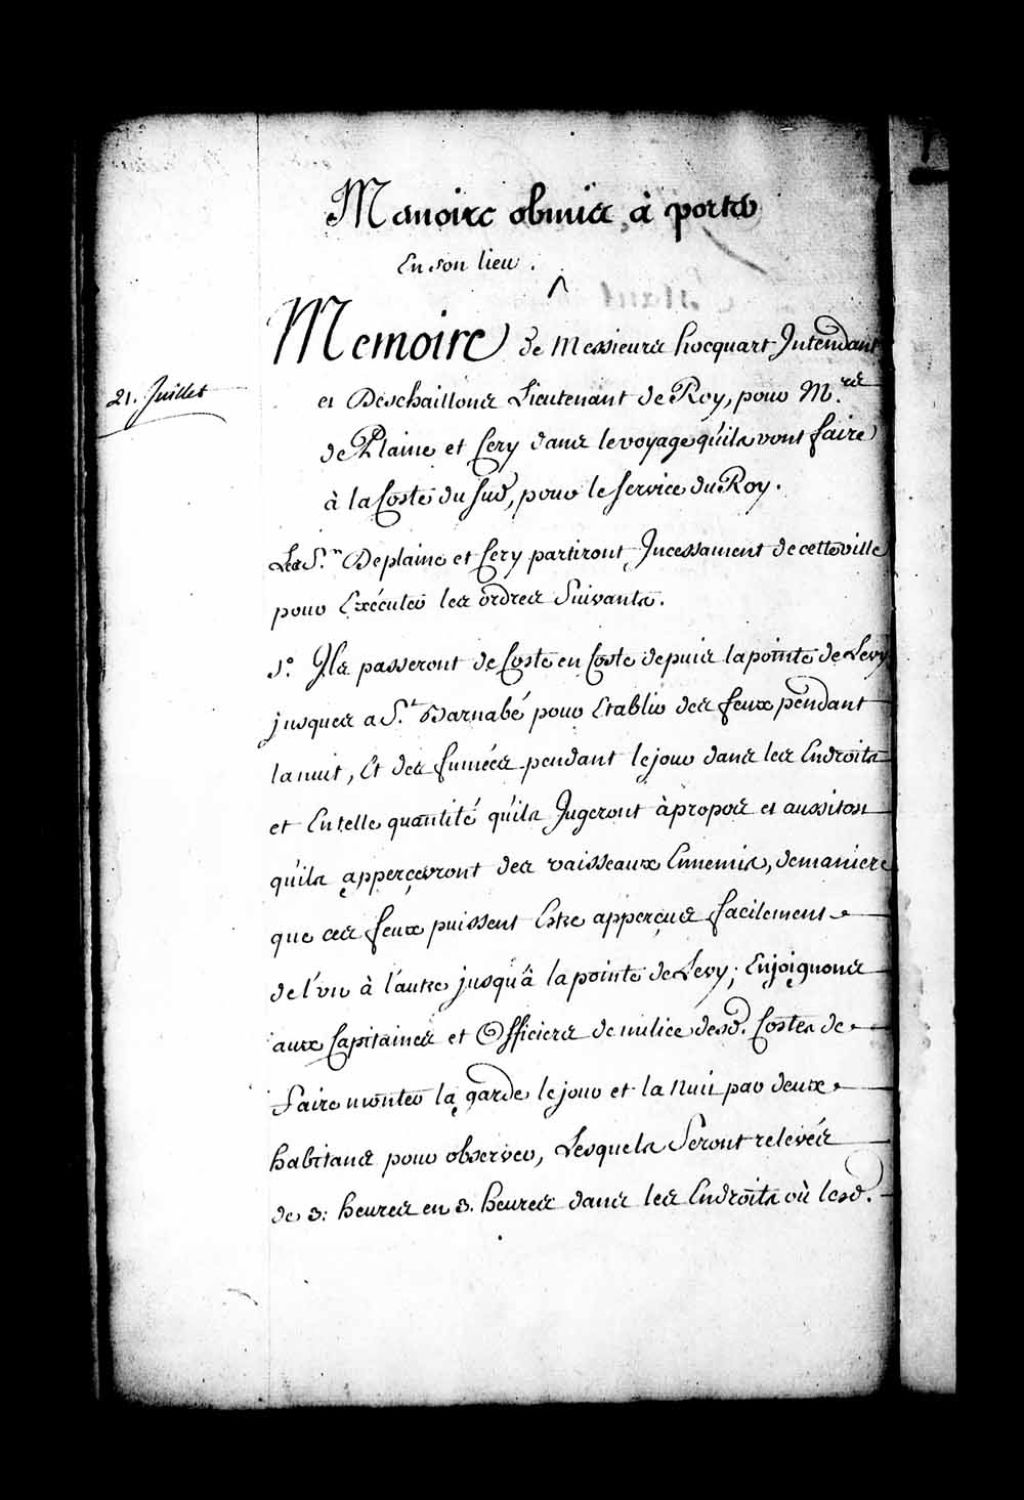 Memoire obmis à porter
En son lieu.
Memoire de Messieurs hocquart Intendant
21. Juillet
et Deschaillons Lieutenant de Roy, pour M.rs
de Plaine et Cery dans le voyage qu'ils vont faire
à la Coste du Sud, pour le service du Roy.
Les S.rs Deplaine et Cery partiront Incessament de cette ville
pour Exécuter les ordres Suivants.
1.° Ils passeront de Coste en Coste depuis la pointe de Levy
jusques a S.t Barnabé pour Etablir des feux pendant
la nuit, Et des fumées pendant le jour dans les Endroits
et En telle quantité qu'ils Jugeront à propos et aussitost
qu'ils apperçevront des vaisseaux Ennemis, de maniere
que ces feux puissent Estre apperçus facilement
de l'un à l'autre jusqu'à la pointe de Levy; Enjoignons
aux Capitaines et Officiers de milice desd. Costes de
faire monter la garde le jour et la nuit par deux
habitans pour observer, Lesquels Seront relevés
de 3: heures en 3. heures dans les Endroits où lesd.